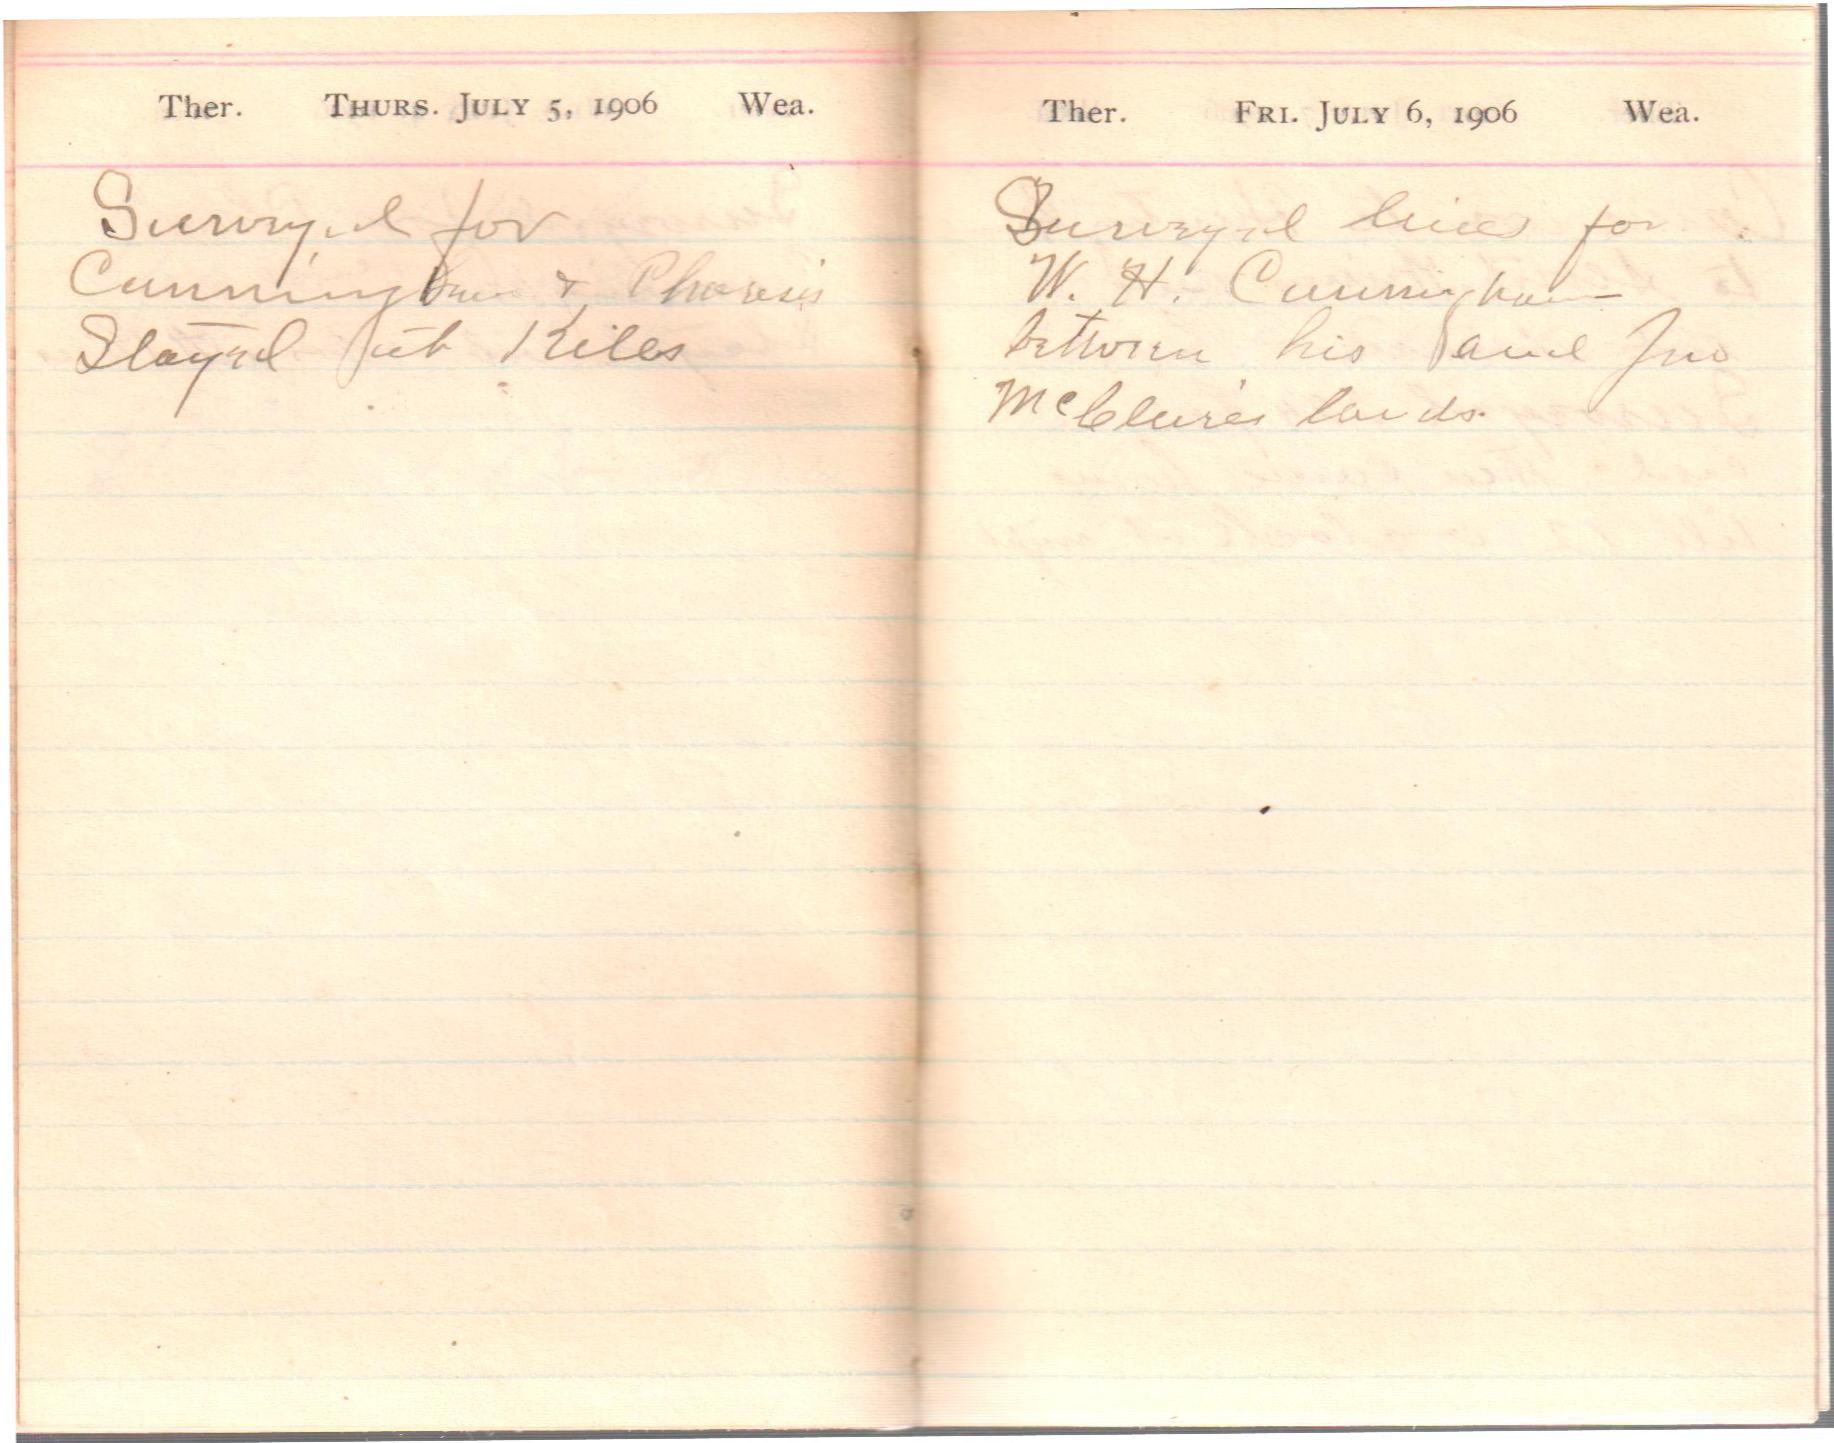 Ther. THURS. JULY 5, 1906 Wea.
Surveyed for
Cunningham &
Stayed at Kiles
Ther. FRI. JULY 6, 1906 Wea.
Surveyed lines for
W. H. Cunningham
between his and Jno
McClure's lands.